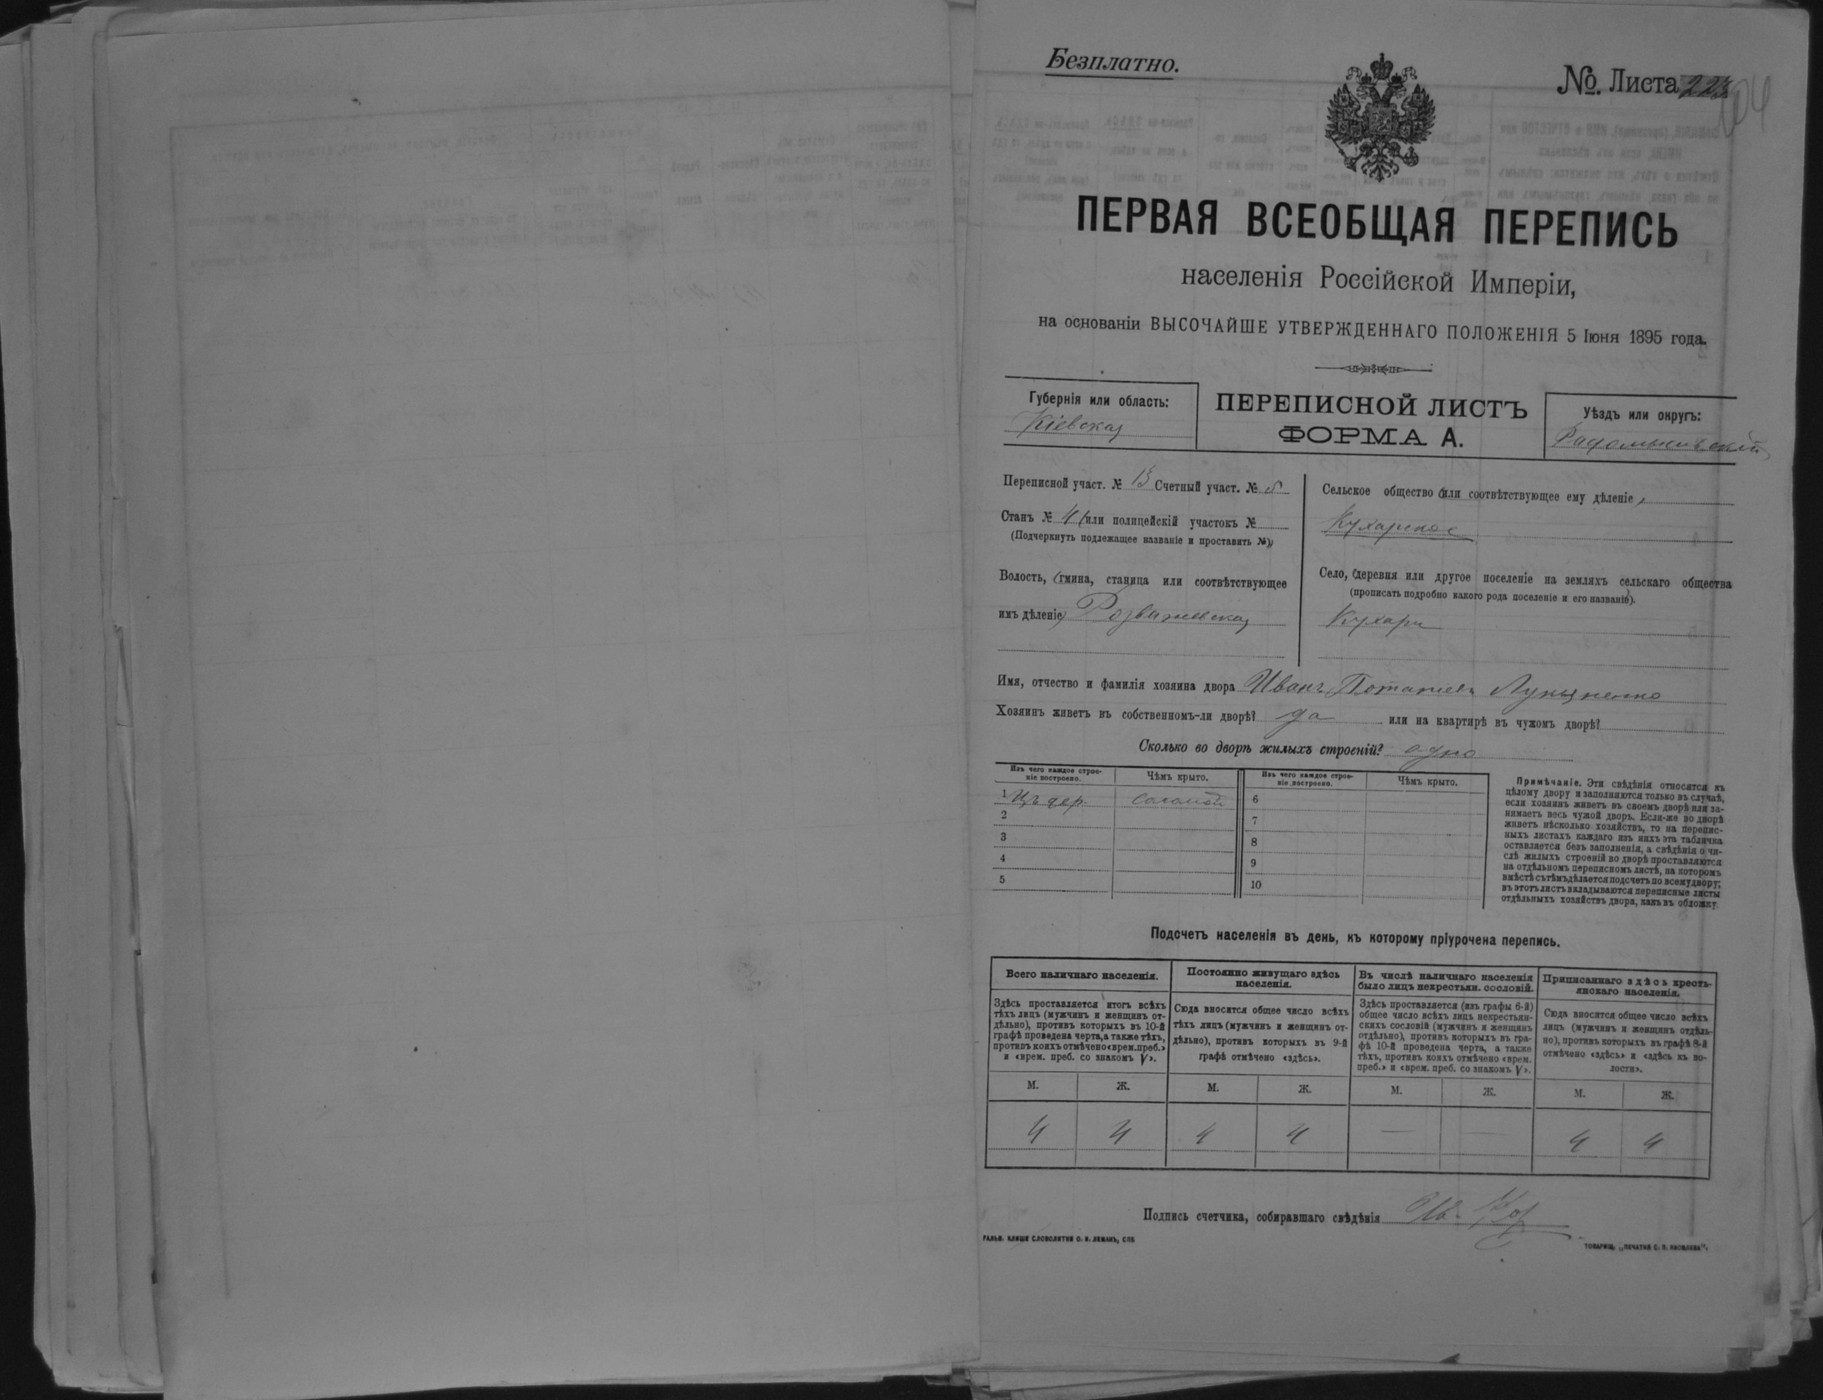 Безплатно.
№. Листа 223
204
ПЕРВАЯ ВСЕОБЩАЯ ПЕРЕПИСЬ
населенія Россійской Имперіи,
на основаніи ВЫСОЧАЙШЕ УТВЕРЖДЕННАГО ПОЛОЖЕНІЯ 5 Іюня 1895 года.
Губернія или область:
Кіевская
ПЕРЕПИСНОЙ ЛИСТЪ
ФОРМА А.
Уѣздъ или округъ:
Радомысльскій
Переписной участ. № 13 Счетный участ. №
Станъ № 4 (или полицейскій участокъ №
(Подчеркнуть подлежащее названіе и проставить №)
Волость, (гмина, станица или соотвѣтствующее
имъ дѣленіе) Розважевская
Сельское общество (или соотвѣтствующее ему дѣленіе)
Кухарское
Село, (деревня или другое поселеніе на земляхъ сельскаго общества
(прописать подробно какого рода поселеніе и его названіе).
Кухари
Имя, отчество и фамилія хозяина двора Иванъ Потапіевъ Луцненко
Хозяинъ живетъ въ собственномъ-ли дворѣ? да или на квартирѣ въ чужомъ дворѣ?
Сколько во дворѣ жилыхъ строеній? одно
Изъ чего каждое строе-
ніе построено.
Чѣмъ крыто.
Изъ чего каждое строе-
ніе построено.
Чѣмъ крыто.
1 Изъ дер. Соломой 6
2 7
3 8
4 9
5 10
Примѣчаніе. Эти свѣдѣнія относятся къ
цѣлому двору и заполняются только въ случаѣ,
если хозяинъ живетъ въ своемъ дворѣ или за-
нимаетъ весь чужой дворъ. Если-же во дворѣ
живетъ нѣсколько хозяйствъ, то на перепис-
ныхъ листахъ каждаго изъ нихъ эта табличка
оставляется безъ заполненія, а свѣдѣнія о чи-
слѣ жилыхъ строеній во дворѣ проставляются
на отдѣльномъ переписномъ листѣ, на которомъ
вмѣстѣ съ тѣмъ дѣлается подсчетъ по всему двору;
въ этотъ листъ вкладываются переписные листы
отдѣльныхъ хозяйствъ двора, какъ въ обложку.
Подсчетъ населенія въ день, къ которому пріурочена перепись.
Всего наличнаго населенія.
Здѣсь проставляется итогъ всѣхъ
тѣхъ лицъ (мужчинъ и женщинъ от-
дѣльно), противъ которыхъ въ 10-й
графѣ проведена черта, а также тѣхъ,
противъ коихъ отмѣчено «врем. преб.»
и «врем. преб. со знакомъ V».
Постоянно живущаго здѣсь
населенія.
Сюда вносится общее число всѣхъ
тѣхъ лицъ (мужчинъ и женщинъ от-
дѣльно), противъ которыхъ въ 9-й
графѣ отмѣчено «здѣсь».
Въ числѣ наличнаго населенія
было лицъ некрестьян. сословій.
Здѣсь проставляется (изъ графы 6-й)
общее число всѣхъ лицъ некрестьян-
скихъ сословій (мужчинъ и женщинъ
отдѣльно), противъ которыхъ въ гра-
фѣ 10-й проведена черта, а также
тѣхъ, противъ коихъ отмѣчено «врем.
преб.» и «врем. преб. со знакомъ V».
Приписаннаго здѣсь кресть-
янскаго населенія.
Сюда вносится общее число всѣхъ
лицъ (мужчинъ и женщинъ отдѣль-
но), противъ которыхъ въ графѣ 8-й
отмѣчено «здѣсь» и «здѣсь къ во-
лости».
М. Ж. М. Ж. М. Ж. М. Ж.
4 4 4 4 — — 4 4
Подпись счетчика, собиравшаго свѣдѣнія
ГАЛЬВ. КЛИШЕ СЛОВОЛИТНИ О. И. ЛЕМАНЪ, СПБ
ТОВАРИЩ. „ПЕЧАТНЯ С. П. ЯКОВЛЕВА“.